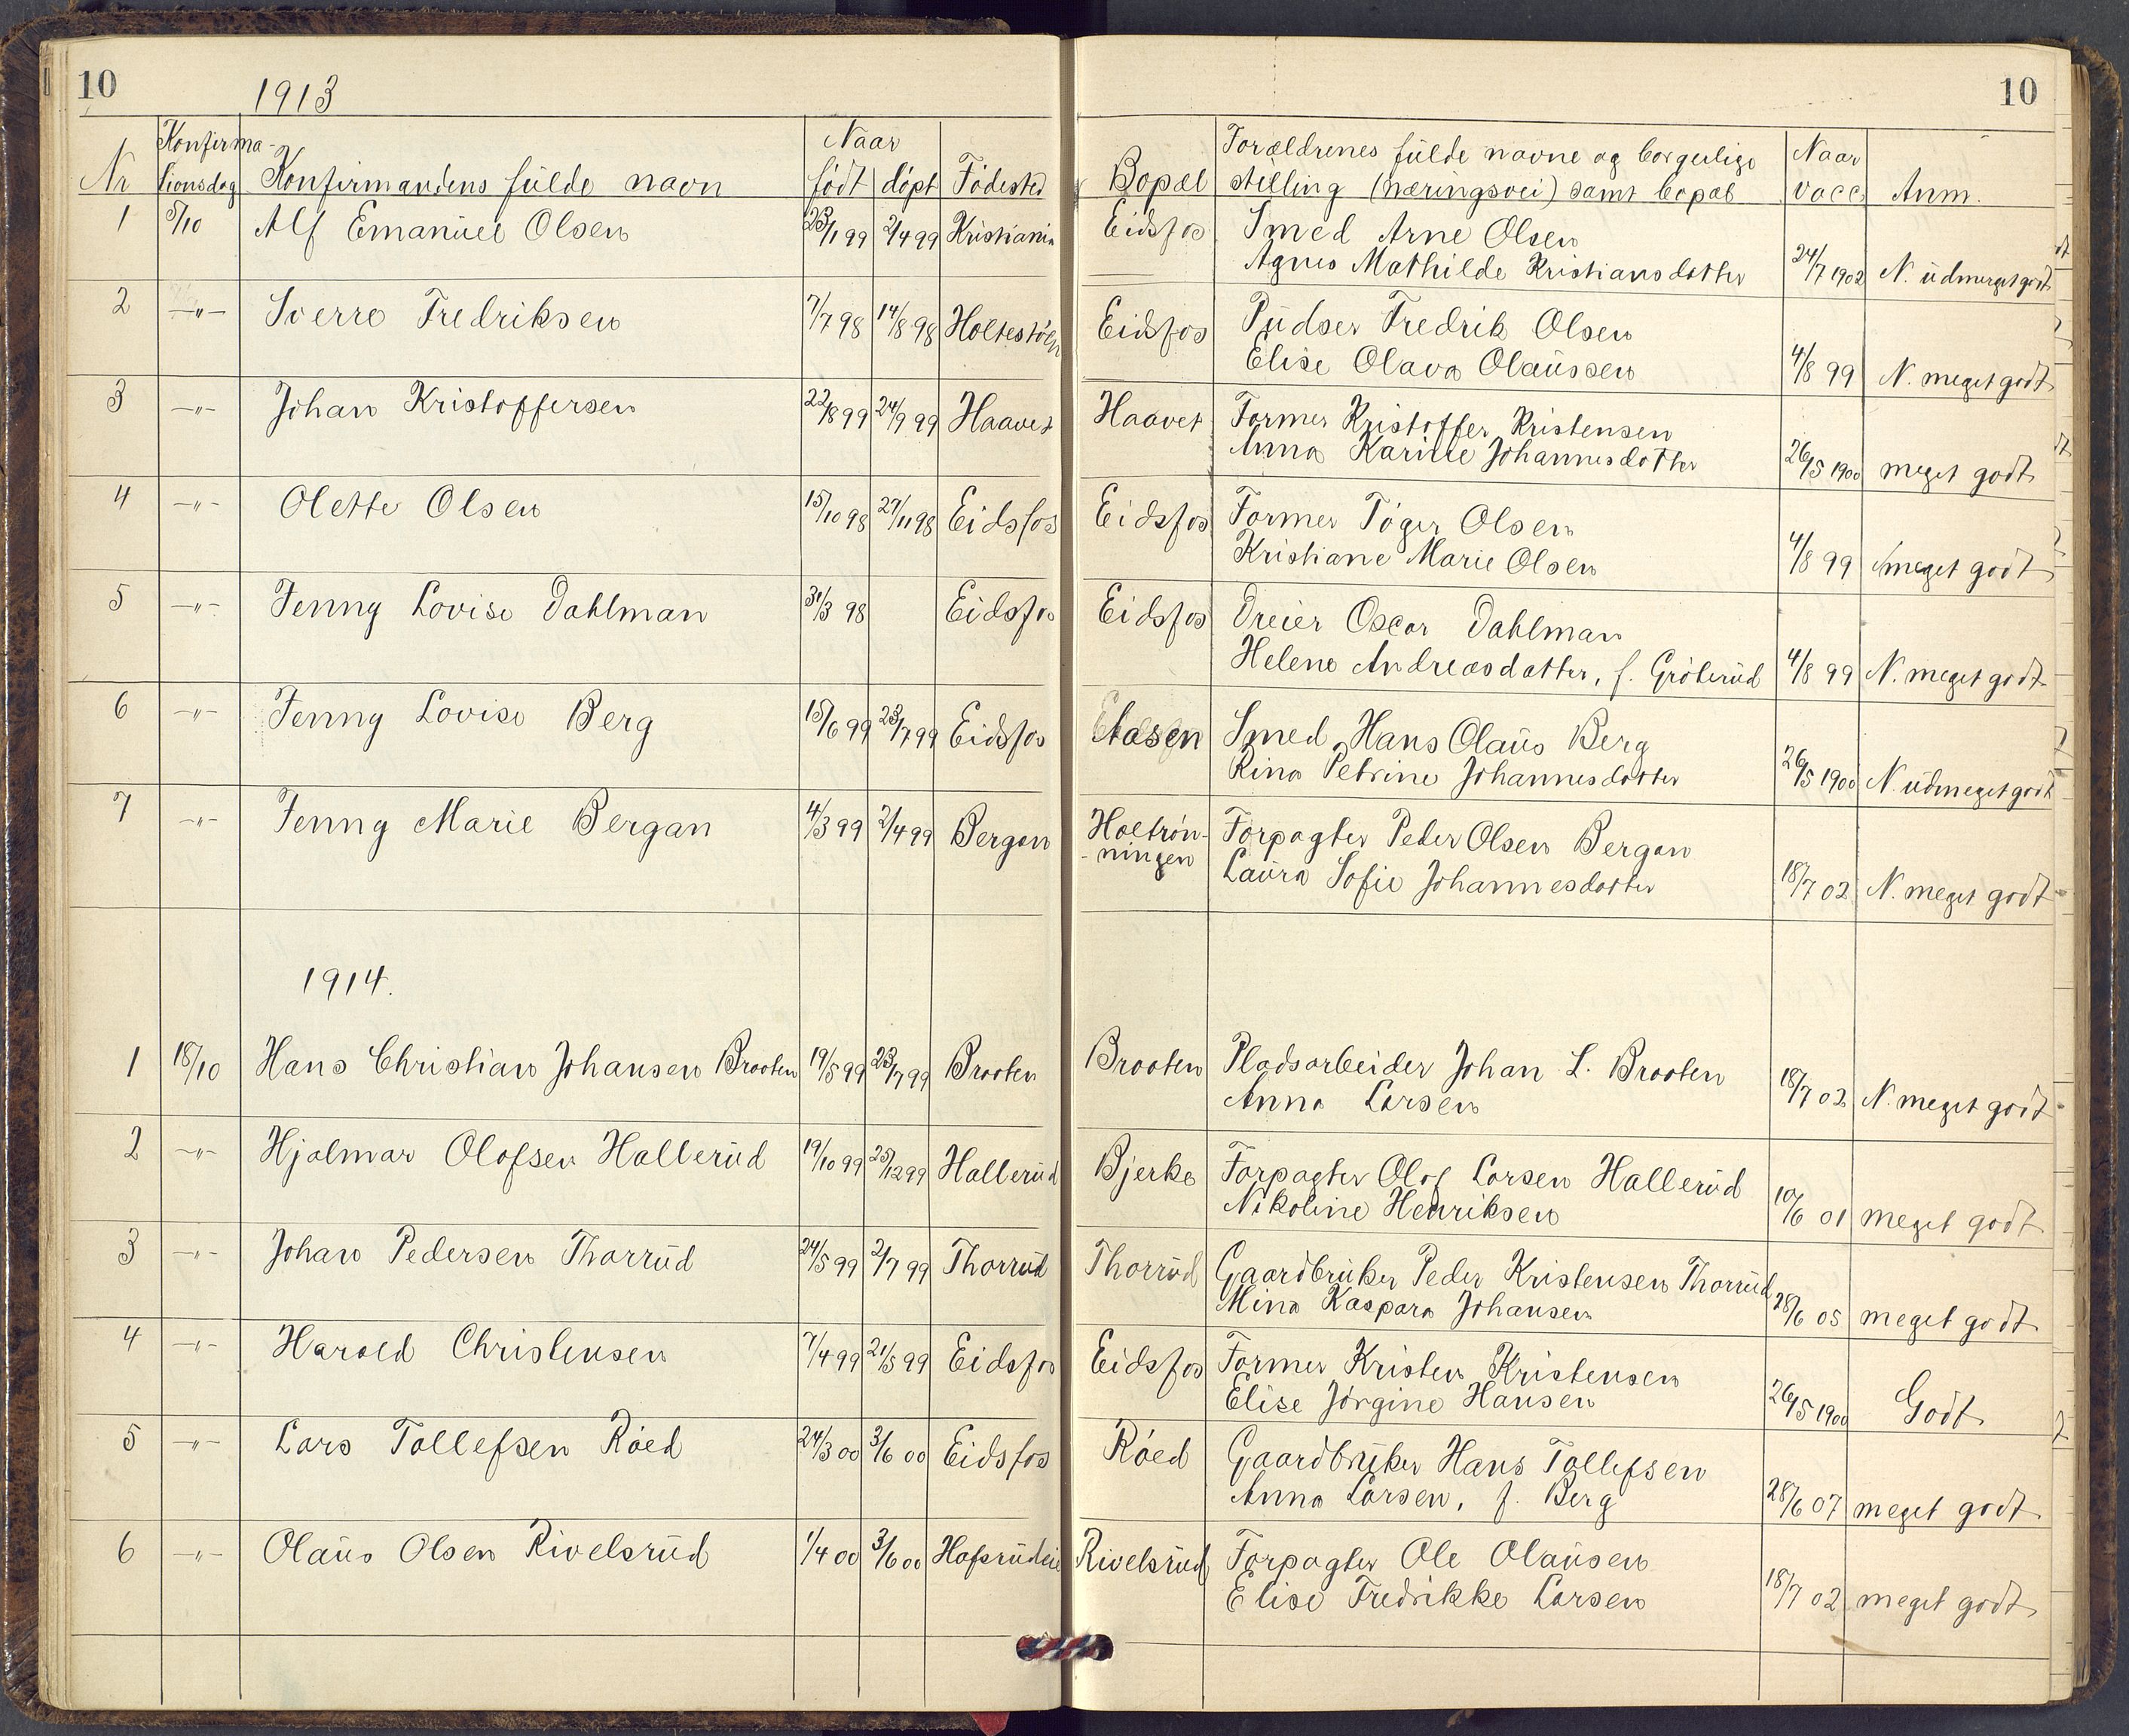 10
1913
10
Nr Konfirma-
tionsdag Konfirmandens fülde navn Naar
født døpt Fødested Bopæl Forældrenes fülde navne og borgerlige
stilling (næringsvei) samt bopæl Naar
vacc. Anm.
1 5/10 Alf Emanüel Olsen 23/1 99 2/4 99 Kristiania Eidsfos Smed Arne Olsen
Agnes Mathilde Kristiansdatter 24/7 1902 N. üdmerget godt
2 -"- Sverre Fredriksen 7/7 98 14/8 98 Eidsfos Püdser Fredrik Olsen
Elise Olava Olaüssen 4/8 99 N. meget godt
3 -"- Johan Kristoffersen 22/8 99 24/9 99 Haavet Haavet Former Kristoffer Kristensen
Anna Karine Johannesdatter 26/5 1900 meget godt
4 -"- Olette Olsen 15/10 98 27/11 98 Eidsfos Eidsfos Former Tøger Olsen
Kristiane Marie Olsen 4/8 99 meget godt
5 -"- Jenny Lovise Dahlman 31/3 98 Eidsfos Eidsfos Dreier Oscar Dahlman
Helene Andreasdatter, f. Grøterüd 4/8 99 N. meget godt
6 -"- Jenny Lovise Berg 15/6 99 23/7 99 Eidsfos Aasen Smed Hans Olaüs Berg
Rina Petrine Johannesdatter 26/5 1900 N. üdmeget godt
7 -"- Jenny Marie Bergan 4/3 99 2/4 99 Bergan Holtrøn-
-ningen Forpagter Peder Olsen Bergan
Laüra Sofie Johannesdatter 18/7 02 N. meget godt
1914.
1 18/10 Hans Christian Johansen Braaten 19/5 99 23/7 99 Braaten Braaten Pladsarbeider Johan L. Braaten
Anna Larsen 18/7 02 N. meget godt
2 -"- Hjalmar Olafsen Hallerüd 19/10 99 25/12 99 Hallerüd Bjerke Forpagter Olaf Larsen Hallerüd
Nikoline Henriksen 10/6 01 meget godt
3 -"- Johan Pedersen Thorrüd 24/5 99 2/7 99 Thorrüd Thorrüd Gaardbrüker Peder Kristensen Thorrüd
Mina Kaspara Johansen 28/6 05 meget godt
4 -"- Harald Christensen 7/4 99 21/5 99 Eidsfos Eidsfos Former Kristen Kristensen
Elise Jørgine Hansen 26/5 1900 Godt
5 -"- Lars Tollefsen Røed 24/3 00 3/6 00 Eidsfos Røed Gaardbrüker Hans Tollefsen
Anna Larsen, f. Berg 28/6 07 meget godt
6 -"- Olaüs Olsen Rivelsrüd 1/4 00 3/6 00 Hafsrüdeie Rivelsrüd Forpagter Ole Olaüsen
Elise Fredrikke Larsen 18/7 02 meget godt